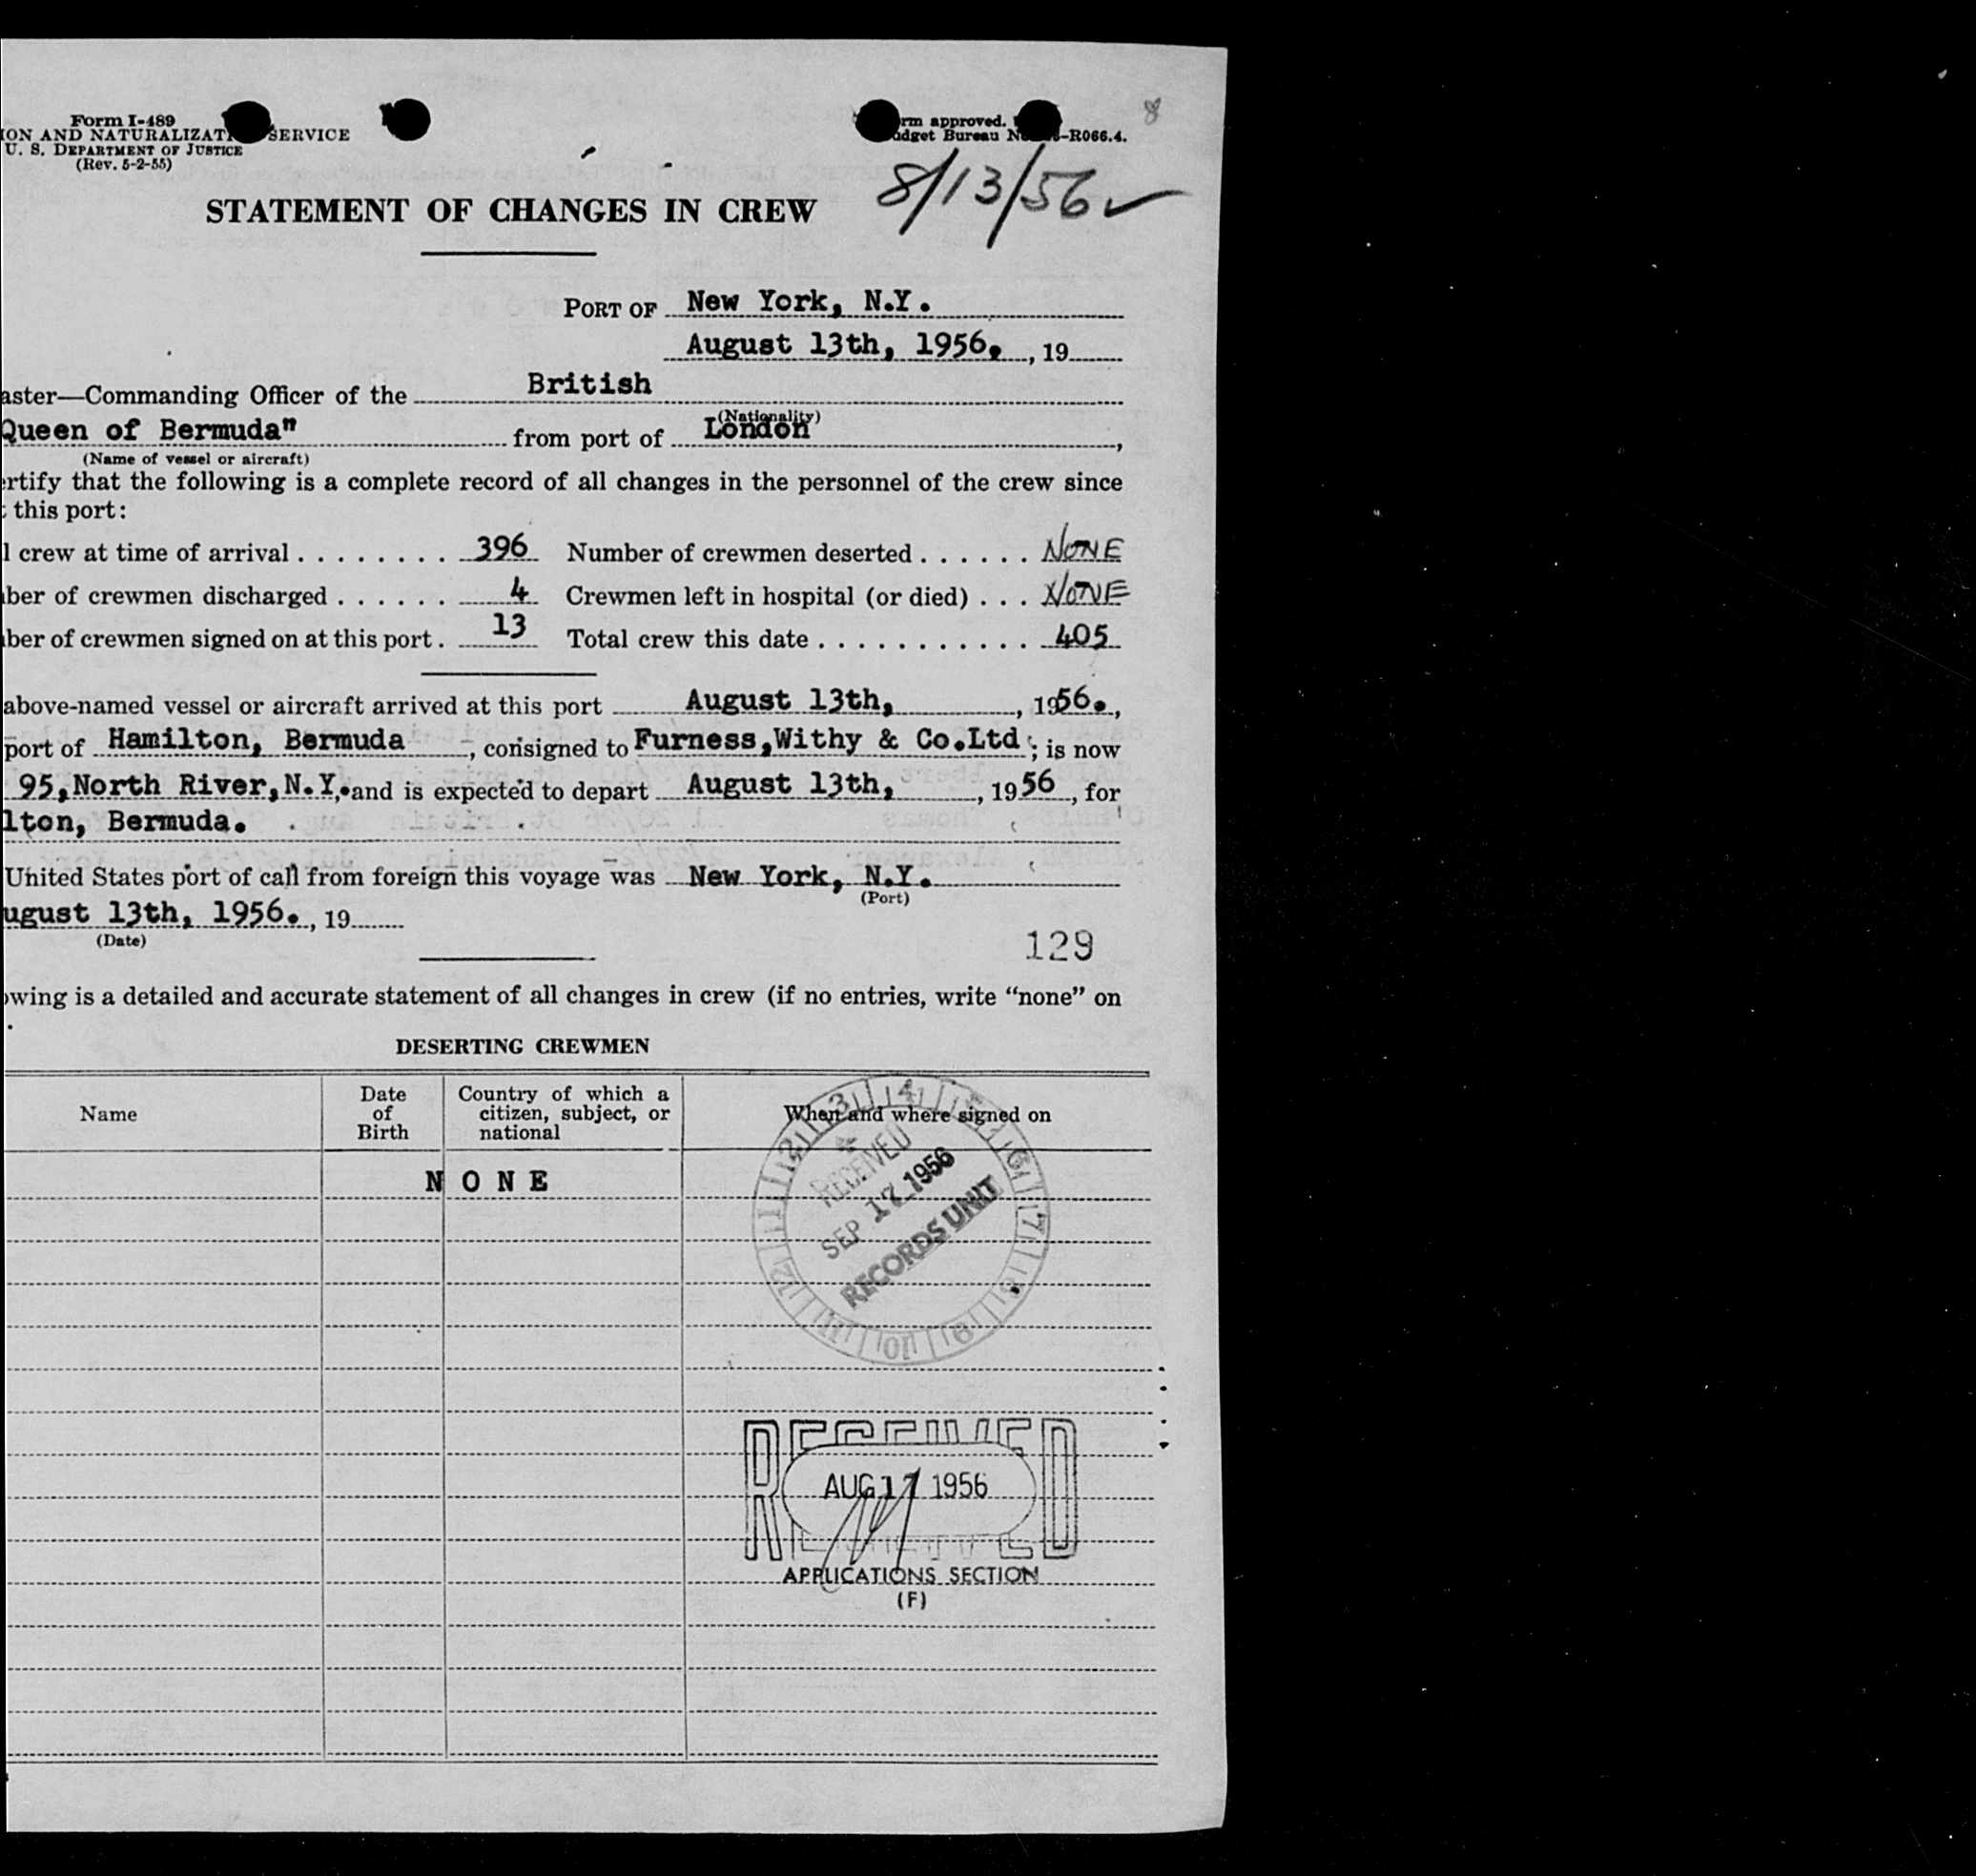 Form I-489
ION AND NATURALIZAT SERVICE
U. S. DEPARTMENT OF JUSTICE
(Rev. 5-2-55)
rm approved.
udget Bureau N -R066.4.
8
8/13/56 ✓
STATEMENT OF CHANGES IN CREW
PORT OF New York, N.Y.
August 13th, 1956. , 19
aster—Commanding Officer of the British
(Nationality)
Queen of Bermuda" from port of London ,
(Name of vessel or aircraft)
ertify that the following is a complete record of all changes in the personnel of the crew since
this port:
l crew at time of arrival . . . . . . . . 396 Number of crewmen deserted . . . . . . NONE
ber of crewmen discharged . . . . . . 4 Crewmen left in hospital (or died) . . . NONE
ber of crewmen signed on at this port . 13 Total crew this date . . . . . . . . . . . 405
above-named vessel or aircraft arrived at this port August 13th, , 1956. ,
port of Hamilton, Bermuda , consigned to Furness,Withy & Co.Ltd ; is now
95,North River,N.Y. and is expected to depart August 13th, , 1956 , for
lton, Bermuda.
United States port of call from foreign this voyage was New York, N.Y.
(Port)
ugust 13th, 1956. , 19
(Date)
129
owing is a detailed and accurate statement of all changes in crew (if no entries, write "none" on
DESERTING CREWMEN
Name
Date of Birth
Country of which a citizen, subject, or national
When and where signed on
N O N E
RECEIVED
SEP 17 1956
RECORDS UNIT
RECEIVED
AUG 17 1956
APPLICATIONS SECTION
(F)